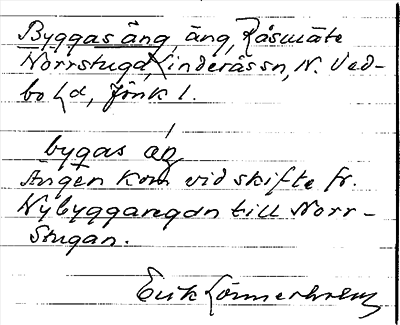 Byggas äng, äng, Råsmåte
Norrstuga, Linderås sn, N. Ved-
bo hd, Jönk l.
bygas äng
Ängen kom vid skifte fr.
Nybyggangdn till Norr-
Stugan.
Erik Lönnerholm